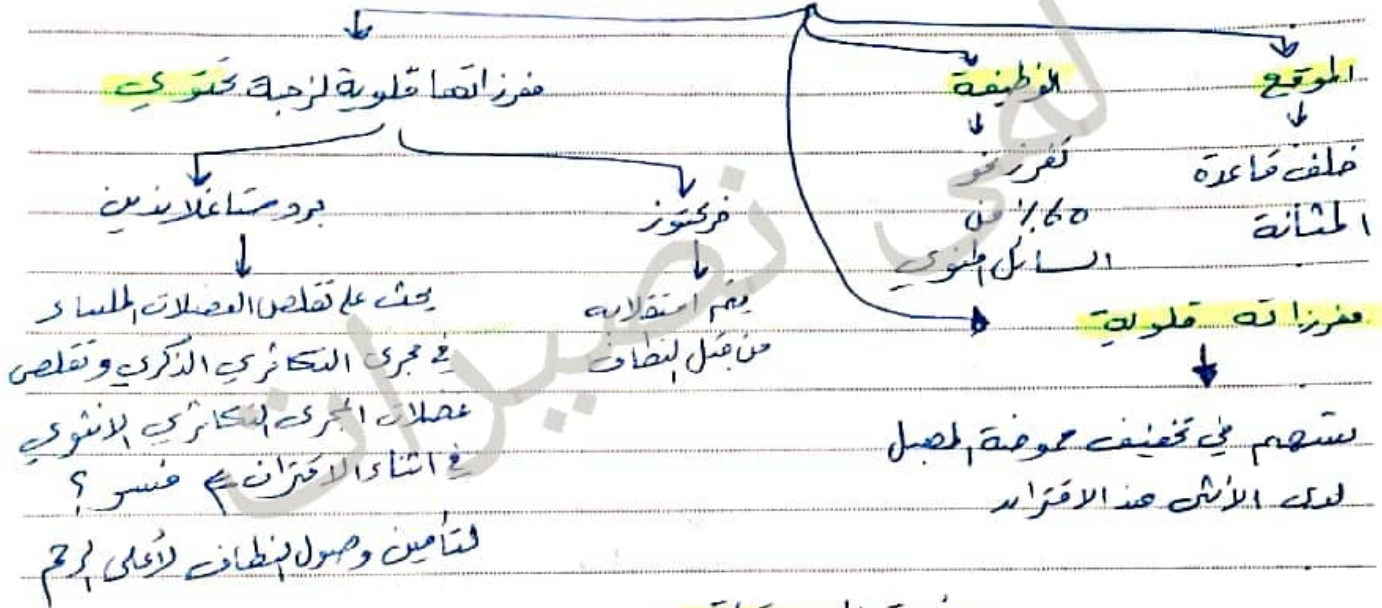 الموقع
خلف قاعدة
المثانة
الوظيفة
تفرز نحو
60% من
السائل المنوي
مفرزاته قلوية
تسهم في تخفيف حموضة المهبل
لدى الأنثى عند الاقتران
مفرزاتها قلوية لزجة تحتوي
فركتوز
يتم استقلابه
من قبل النطاف
بروستاغلاندين
يحث على تقلص العضلات الملساء
في مجرى التكاثري الذكري وتقلص
عضلات المجرى التكاثري الانثوي
في اثناء الاقتران فسر ؟
لتأمين وصول النطاف لأعلى الرحم
نصيرات